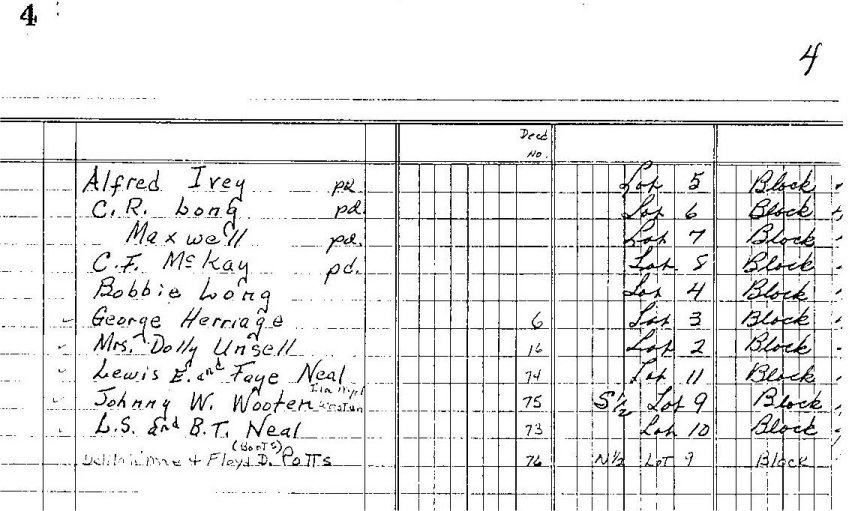 4
4
Deed No.
Alfred Ivey pd. Lot 5 Block
C. R. Long pd. Lot 6 Block
Maxwell pd. Lot 7 Block
C. F. McKay pd. Lot 8 Block
Bobbie Long Lot 4 Block
George Herriage 6 Lot 3 Block
Mrs. Dolly Unsell 16 Lot 2 Block
Lewis E. and Faye Neal 74 Lot 11 Block
Johnny W. Wooten 75 S½ Lot 9 Block
L.S. and B.T. Neal 73 Lot 10 Block
+ Floyd D. Potts 76 N½ LoT 9 Block